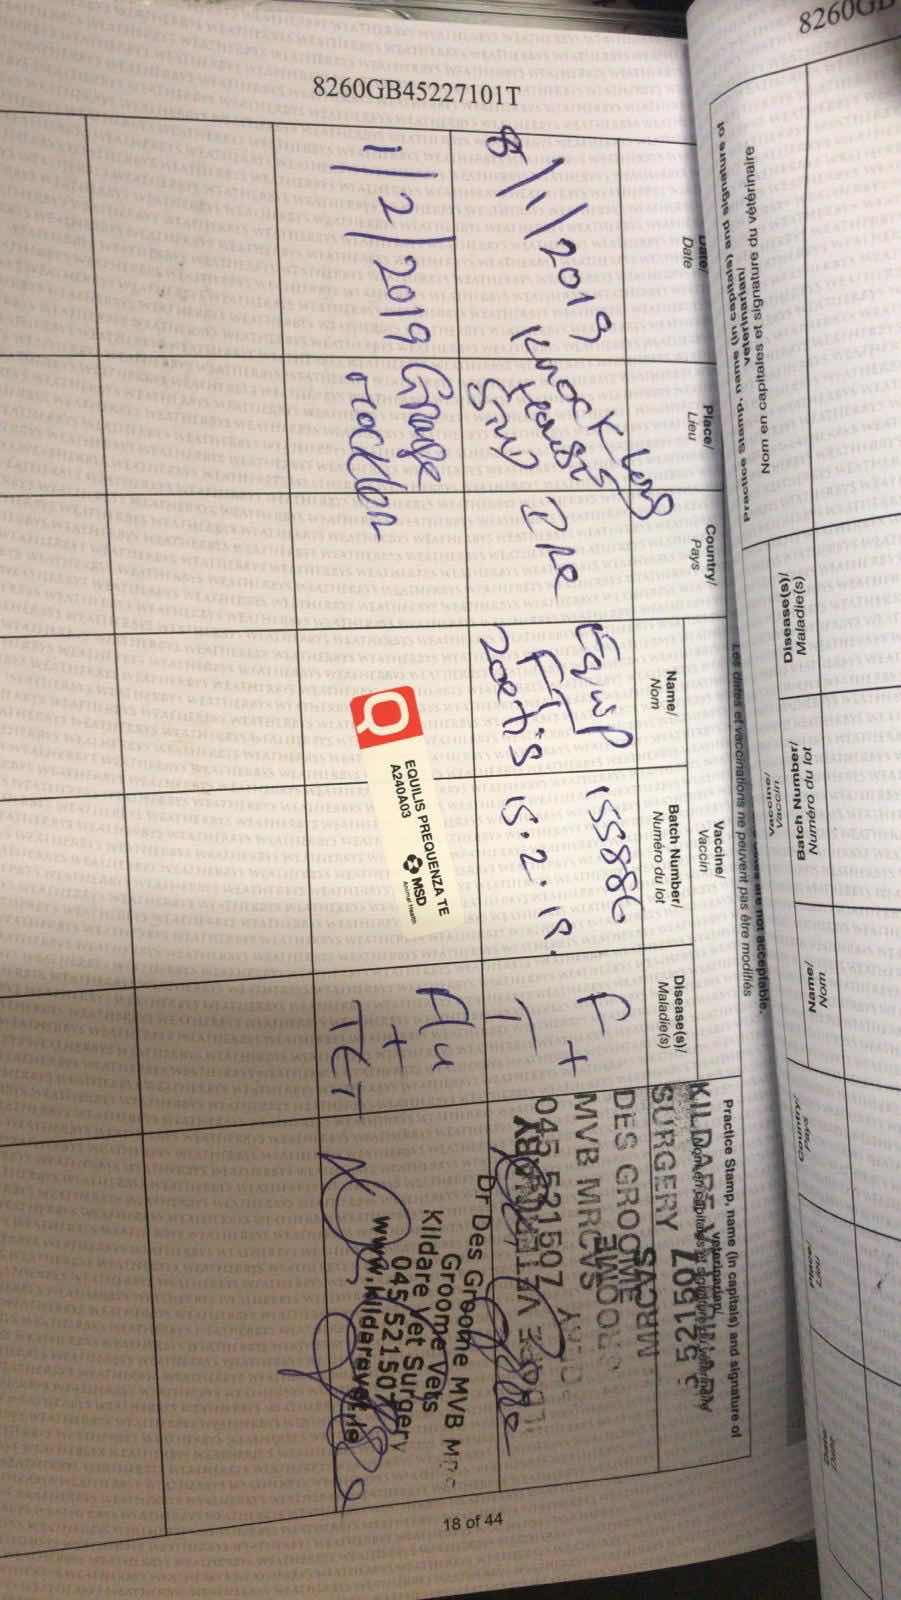 8260GB45227101T
8260GB
Nom en capitales et signature du vétérinaire
Practice Stamp, name (in capitals) and signature of
veterinarian/
Disease(s)/
Maladie(s)
Batch Number/
Numéro du lot
Vaccine/
Vaccin
Name/
Nom
Country/
Pays
Les dates et vaccinations ne peuvent pas être modifiés
are not acceptable.
Date/
Date
Place/
Lieu
Country/
Pays
Vaccine/
Vaccin
Name/
Nom
Batch Number/
Numéro du lot
Disease(s)/
Maladie(s)
Practice Stamp, name (in capitals) and signature of
veterinarian/
8/1/2019
Knock
House
Stud
Ire
Equip
FT
Zoetis
155886
15.2.19.
F
+
T
KILDARE
SURGERY
DES GROOME
MVB MRCVS
045 521507
1/2/2019
Grange
EQUILIS PREQUENZA TE
A240A03
MSD
Animal Health
Flu
+
TET
Dr Des Groome MVB
Groome Vets
Kildare Vet Surgery
045 521507
www.kildarevet.ie
18 of 44